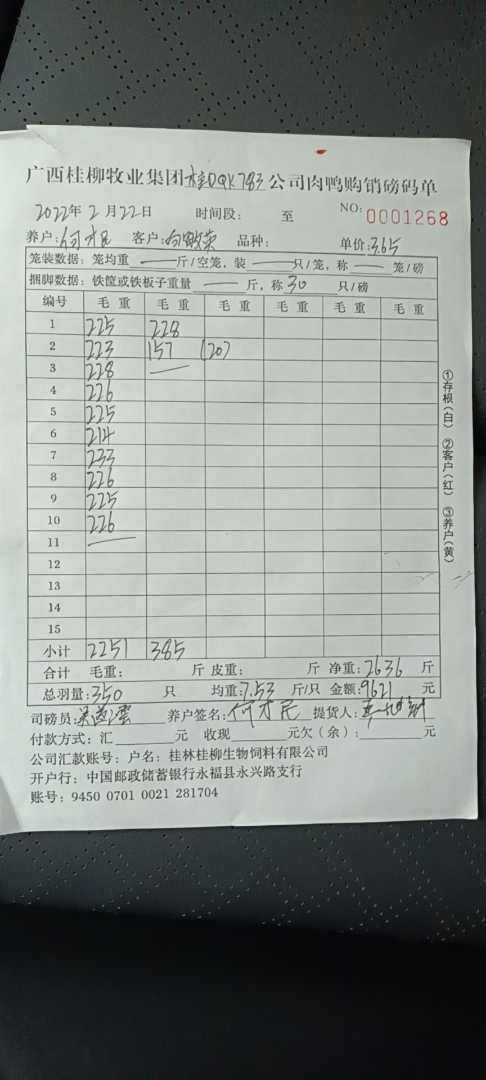 广西桂柳牧业集团桂DQK783公司肉鸭购销磅码单
2022年2月22日 时间段： 至 NO: 0001268
养户:何才民 客户: 品种: 单价:3.65
笼装数据: 笼均重 —— 斤/空笼, 装 —— 只/笼, 称 —— 笼/磅
捆脚数据: 铁筐或铁板子重量 —— 斤, 称 30 只/磅
编号 毛 重 毛 重 毛 重 毛 重 毛 重 毛 重
1 225 228
2 223 157 (20)
3 228 ——
4 226
5 225
6 214
7 233
8 226
9 225
10 226
11 ——
12
13
14
15
小计 2251 385
合计 毛重: 斤 皮重: 斤 净重:2636 斤
总羽量:350 只 均重:7.53 斤/只 金额:9621 元
司磅员: 养户签名:何才民 提货人:
付款方式: 汇 元 收现 元欠(余): 元
公司汇款账号: 户名: 桂林桂柳生物饲料有限公司
开户行: 中国邮政储蓄银行永福县永兴路支行
账号: 9450 0701 0021 281704
①存根(白) ②客户(红) ③养户(黄)